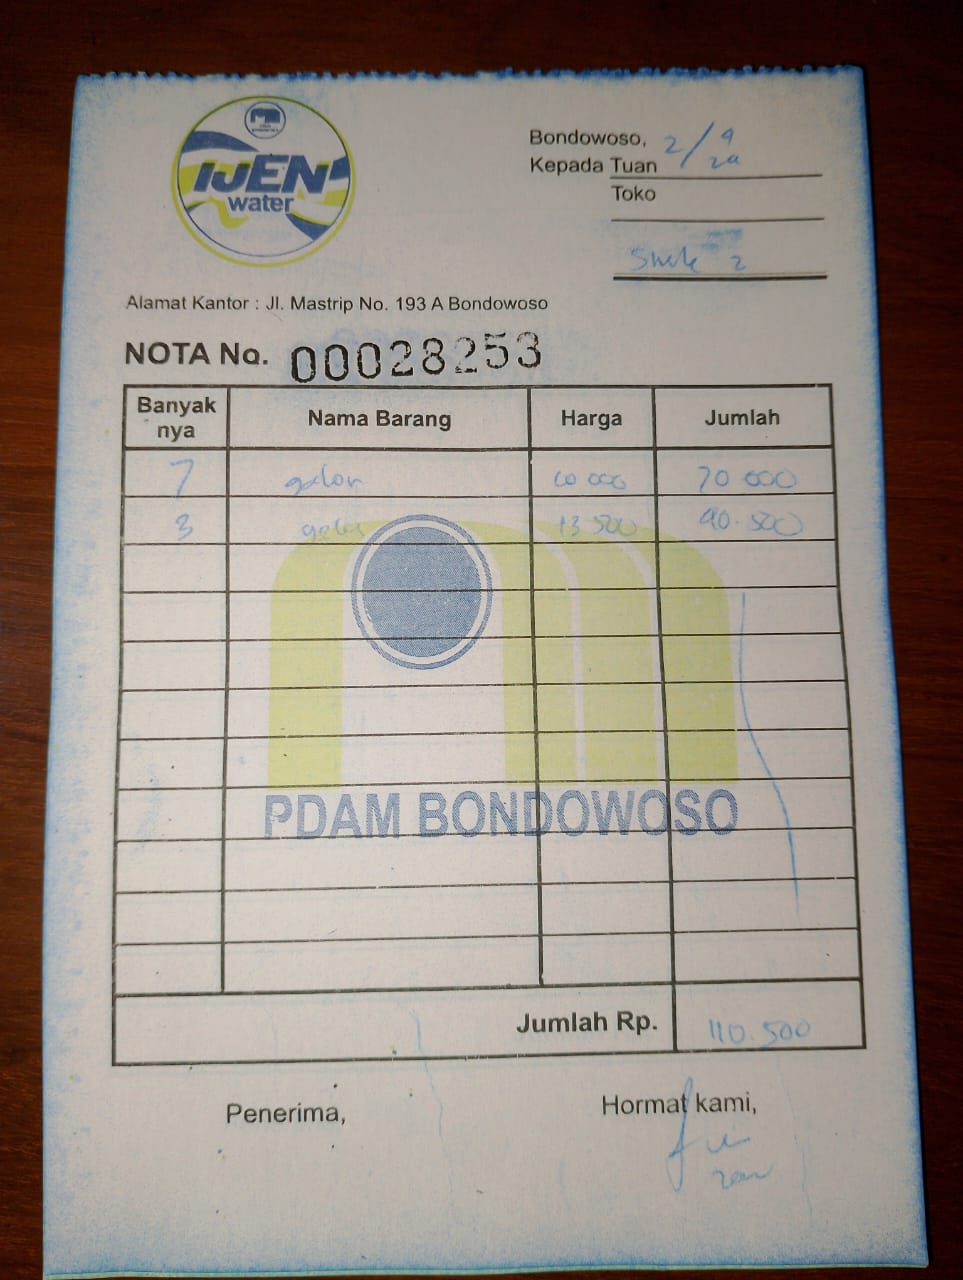 IJEN
water
Bondowoso, 2/9
Kepada Tuan
Toko
2
Alamat Kantor : Jl. Mastrip No. 193 A Bondowoso
NOTA No. 00028253
Banyak nya Nama Barang Harga Jumlah
7 galon 10 000 70 000
3 galon 13 500 40.500
PDAM BONDOWOSO
Jumlah Rp. 110.500
Penerima, Hormat kami,